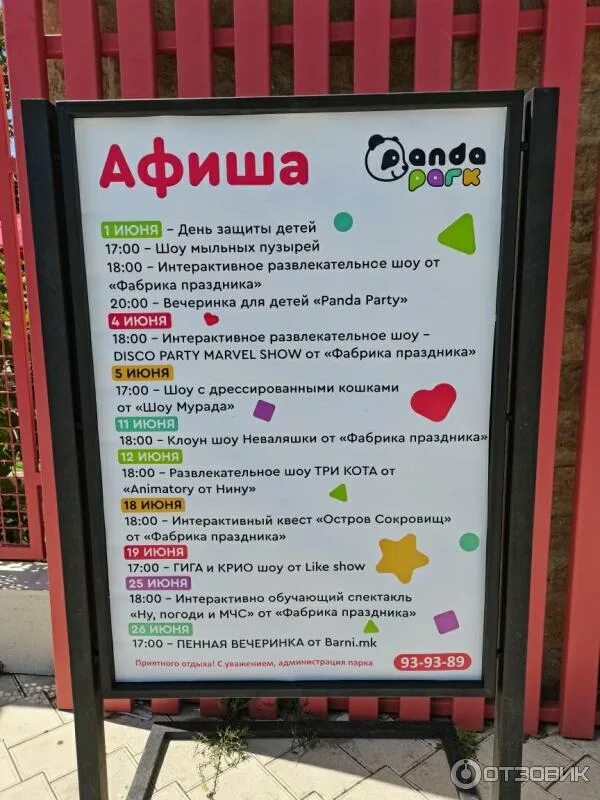 Афиша
Panda
park
1 ИЮНЯ – День защиты детей
17:00 – Шоу мыльных пузырей
18:00 – Интерактивное развлекательнсе шоу от
«Фабрика праздника»
20:00 – Вечеринка для детей «Panda Party»
4 ИЮНЯ
18:00 – Интерактивное развлекательное шоу –
DISCO PARTY MARVEL SHOW от «Фабрика праздника»
5 ИЮНЯ
17:00 – Шоу с дрессированными кошками
от «Шоу Мурада»
11 ИЮНЯ
18:00 – Клоун шоу Неваляшки от «Фабрика праздника»
12 ИЮНЯ
18:00 – Развлекательное шоу ТРИ КОТА от
«Animatory от Нину»
18 ИЮНЯ
18:00 – Интерактивный квест «Остров Сокровищ»
от «Фабрика праздника»
19 ИЮНЯ
17:00 – ГИГА и КРИО шоу от Like show
25 ИЮНЯ
18:00 – Интерактивно обучающий спектакль
«Ну, погоди и МЧС» от «Фабрика праздника»
26 ИЮНЯ
17:00 – ПЕННАЯ ВЕЧЕРИНКА от Barni.mk
Приятного отдыха! С уважением, администрация парка 93-93-89
ОТЗОВИК